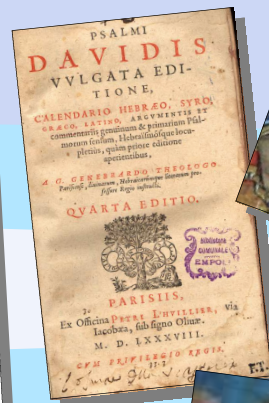 PSALMI
DAVIDIS
VVLGATA EDI-
TIONE,
CALENDARIO HEBRÆO, SYRO,
GRÆCO, LATINO, ARGVMENTIS ET
commentariis genuinum & primarium Psal-
morum sensum, Hebraismósque locu-
pletiùs, quàm priore editione
aperientibus,
A G. GENEBRARDO THEOLOGO
Parisiensi, Hebraicarumque literarum pro-
fessore Regio
QVARTA EDITIO.
BIBLIOTECA
COMUNALE
EMPOLI
PARISIIS,
Ex Officina PETRI L'HVILLIER, via
Iacobæa, sub signo Oliuæ.
M. D. LXXXVIII.
CVM PRIVILEGIO REGIS.